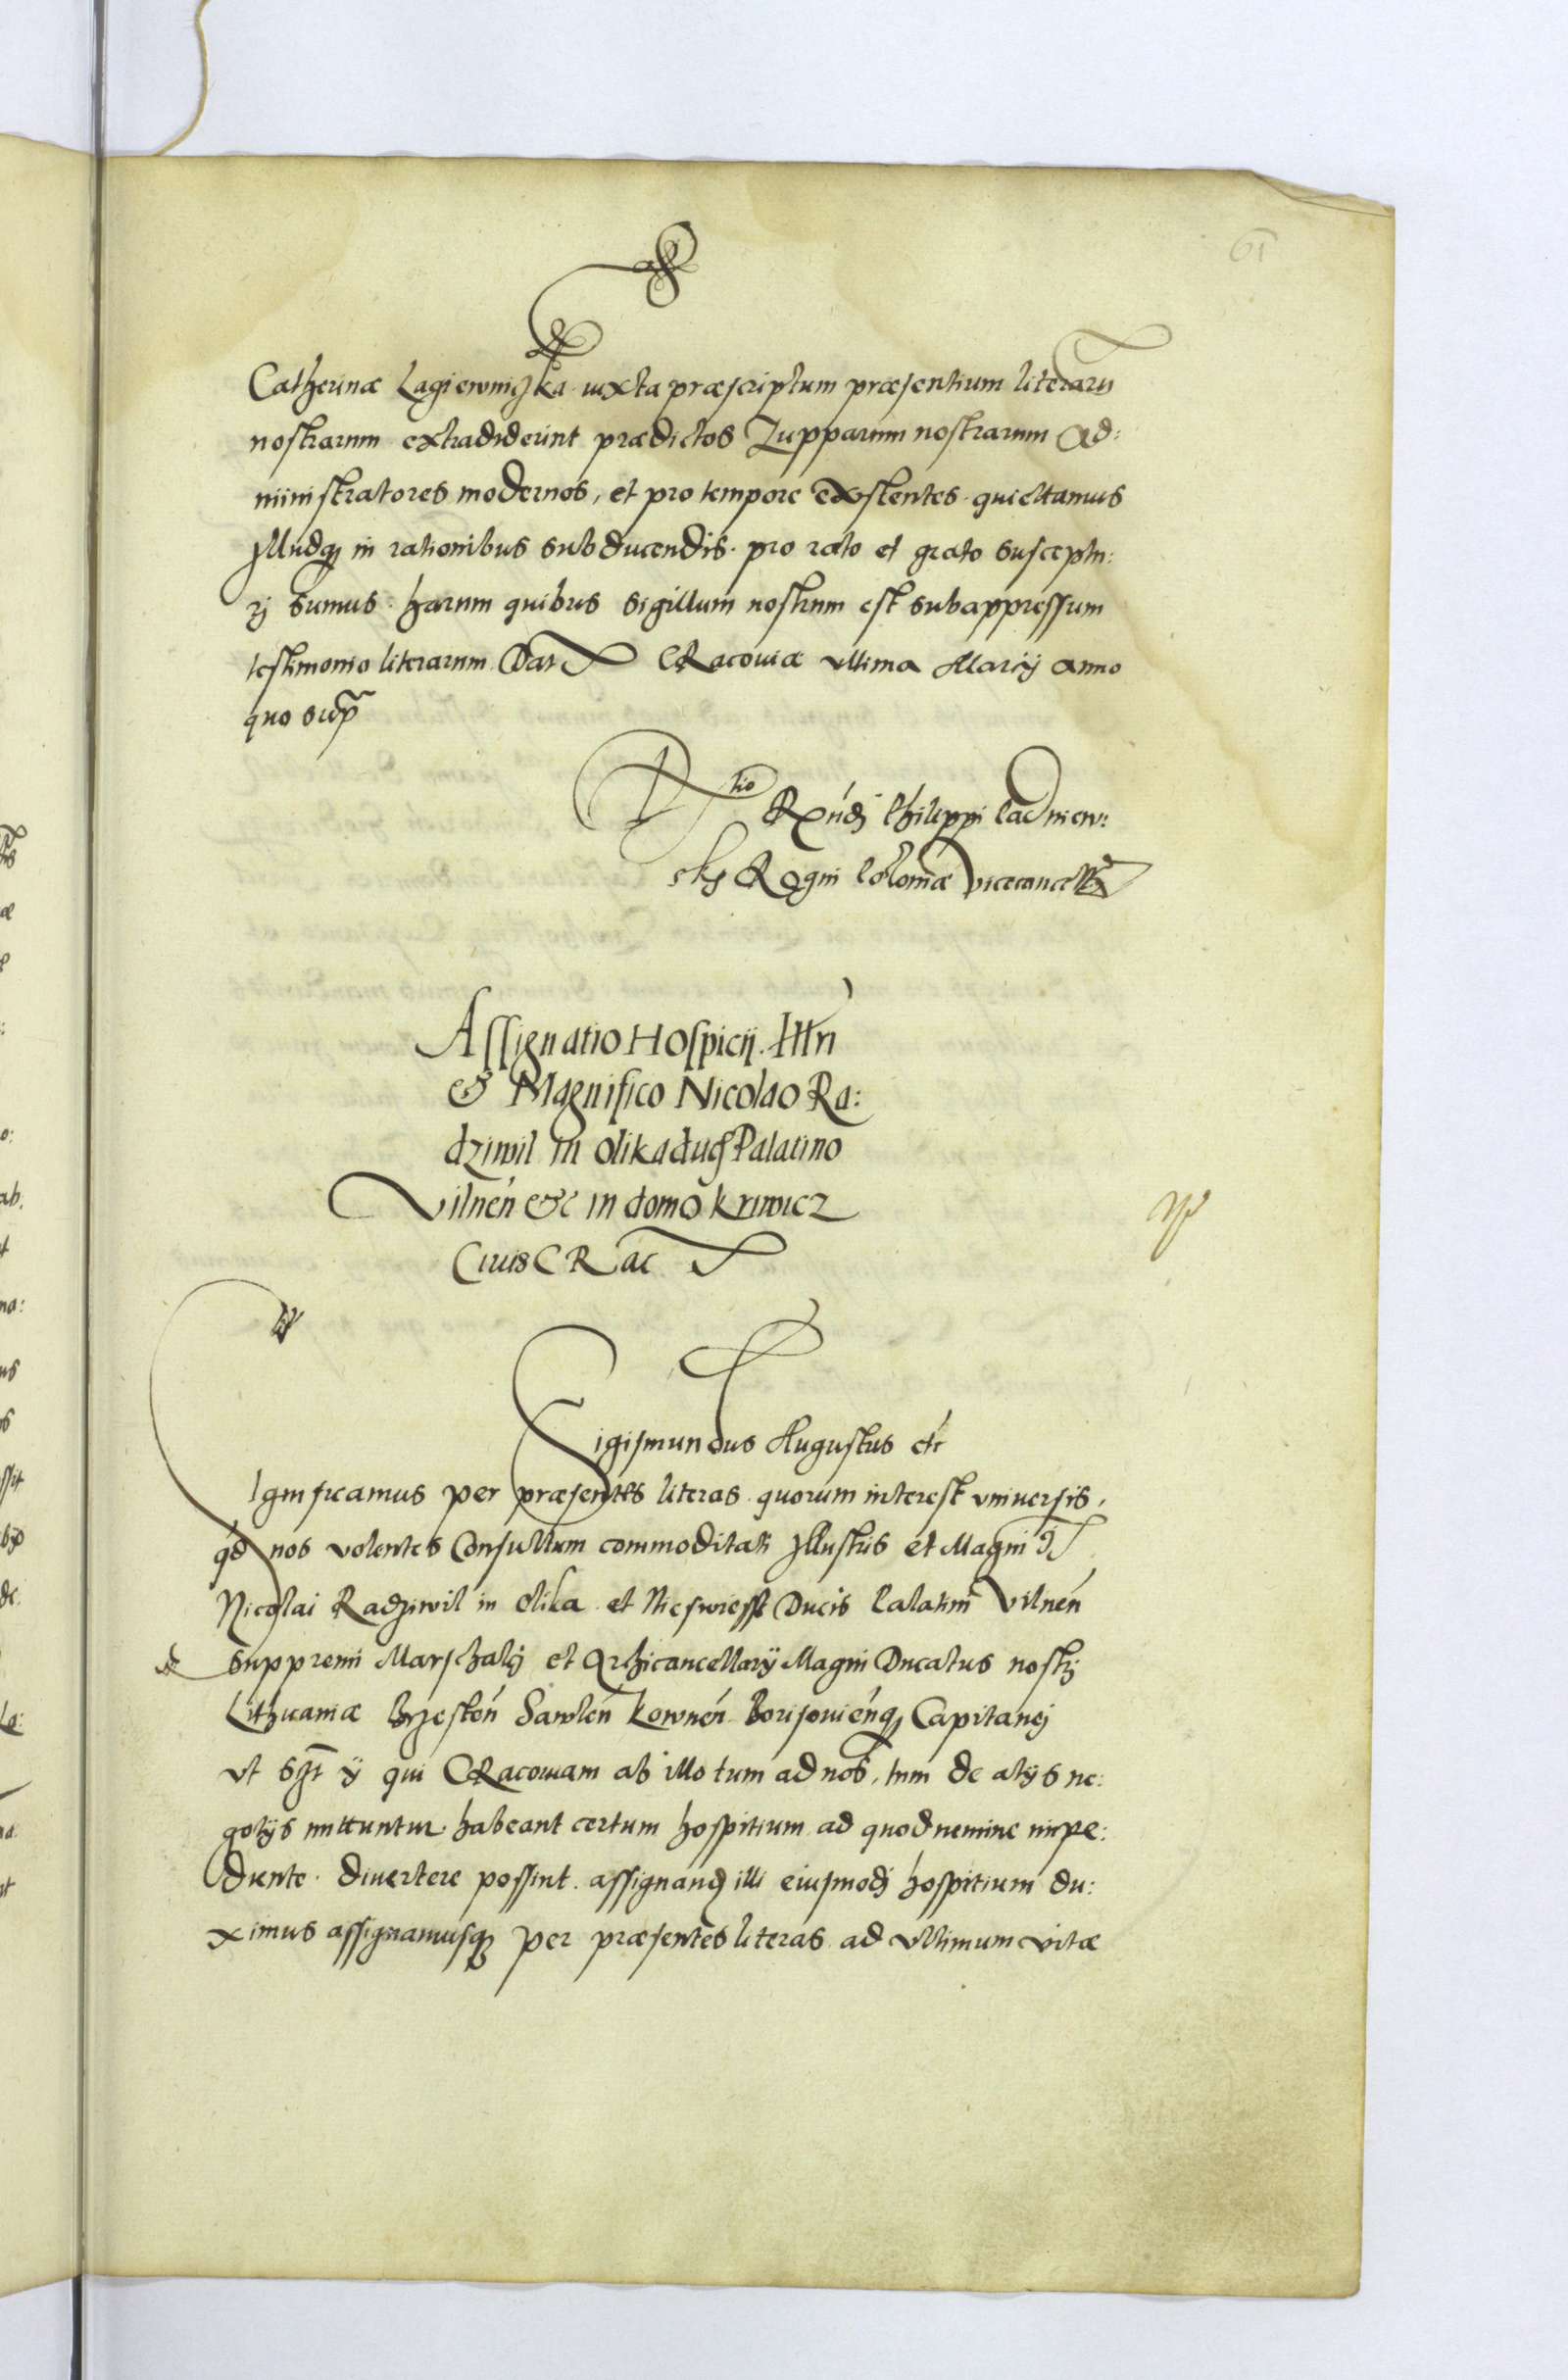 61
Catherinæ Lagiewniczka iuxta præscriptum præsentium literarū
nostrarum extradiderint prædictos Zupparum nostrarum Ad:
ministratores modernos, et pro tempore existentes quiettamus
Illudq3 in rationibus subducendis pro rato et grato susceptu:
rj sumus harum quibus sigillum nostrum est subappressum
testimonio literarum Dat CRacoviæ ultima Marcij anno
quo supra
Rtio Rṅdj Philippi Padniew:
skj Regni Poloniæ vicecancell
Assignatio Hospicij Illri
& Magnifico Nicolao Ra:
dziwil in Olika duci Palatino
Vilnen̄ &c in domo Kriwicz
Ciuis CRac
Sigismundus Augustus etc
Significamus per præsentes literas quorum interest vniversis,
qd nos volentes Consultum commoditati Jllustris et Magnici
Nicolai Radziwil in Olika et Nieswiesz Ducis Palatini Vilnen̄
suppremi Marschalcj et Archicancellarij Magni Ducatus nostrj
Lithuaniæ Brzesten̄ Sawlen̄ Kownen̄ Borisouien̄q3 Capitanej
vt ij qui CRacoviam ab illo tum ad nos, tum de alijs ne:
gotijs mittuntur habeant certum hospitium ad quod nemine impe:
diente divertere possint assignandj illi eiusmodj hospitium du:
ximus assignamusq3 per præsentes literas ad vltimum vitæ